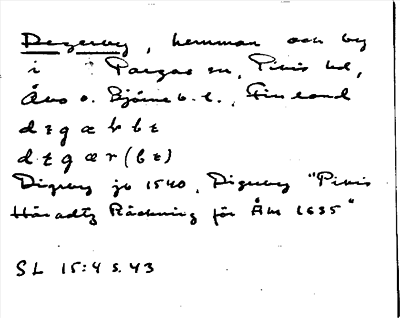 Degerby, hemman och by
i Pargas sn, Pikis hd,
Åbo o. Björneb. l., Finland
d ɛ g æ b b ɛ
d ɛ g æ r (b ɛ)
Digeby jb 1540, Digerby "Pikis
Häradtz Räckning för Åhr 1635"
SL 15:4 s. 43